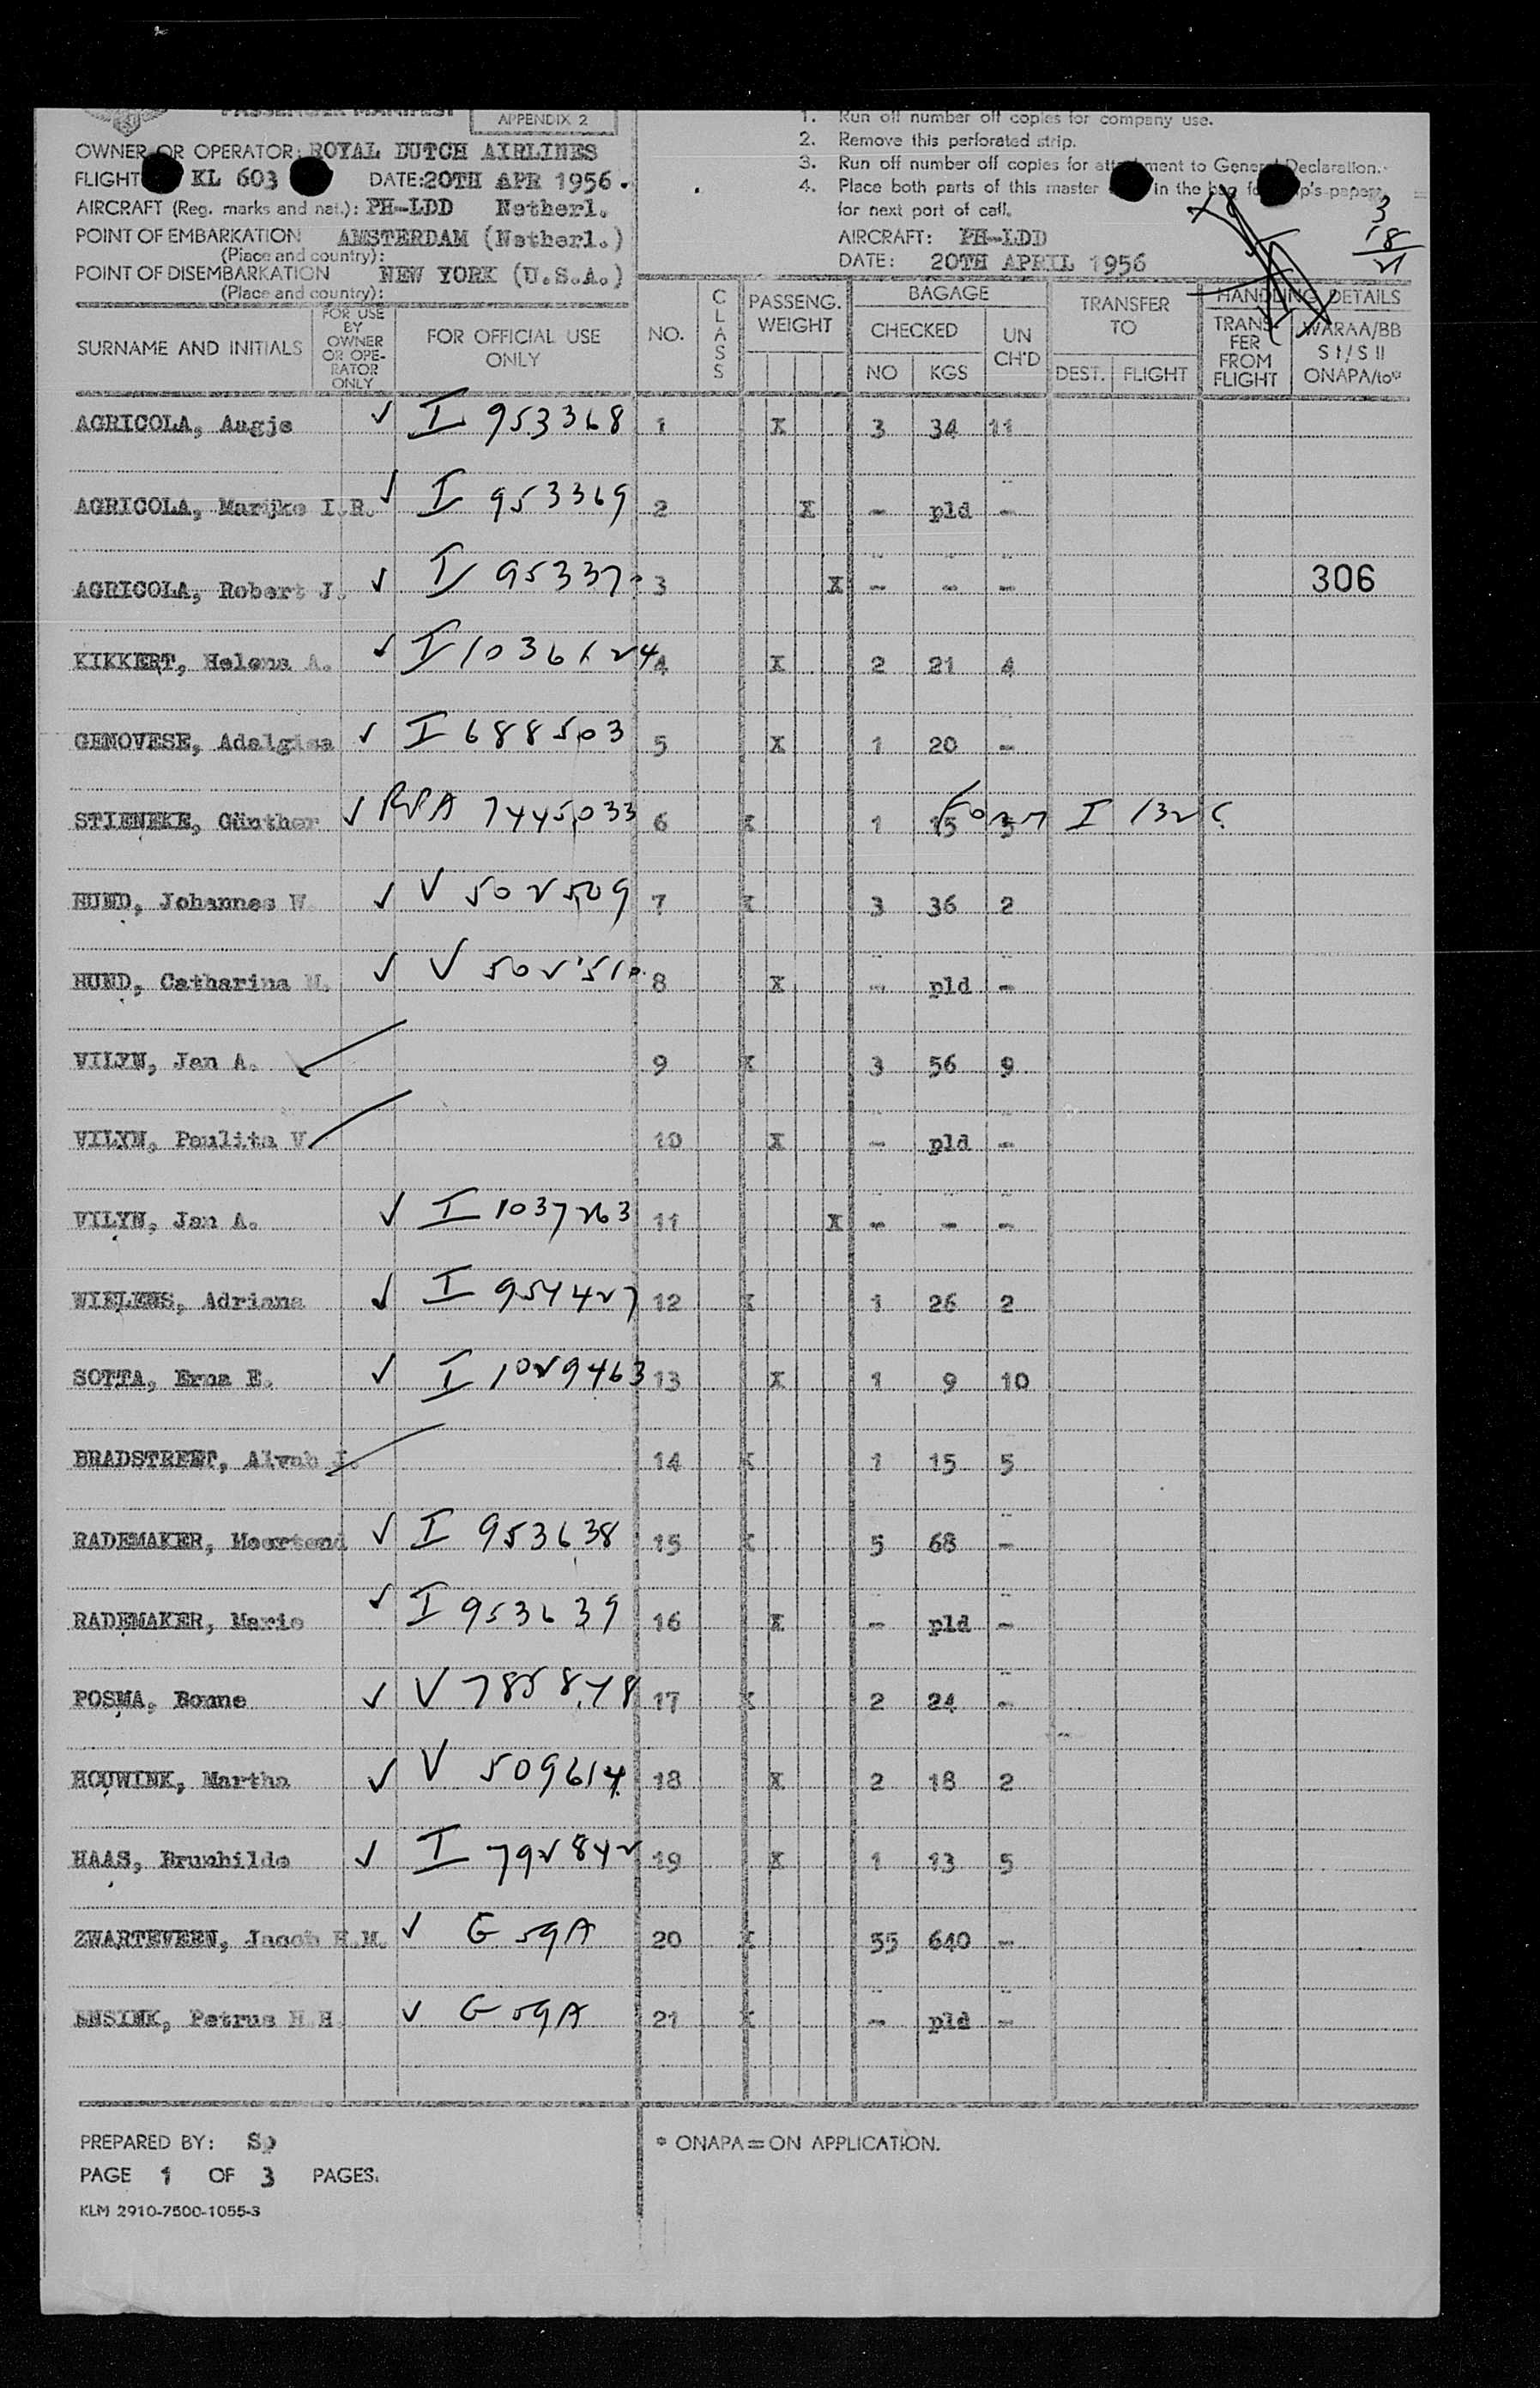 PASSENGER MANIFEST
APPENDIX 2
OWNER OR OPERATOR: ROYAL DUTCH AIRLINES
FLIGHT KL 603 DATE: 20TH APR 1956.
AIRCRAFT (Reg. marks and nat.): PH-LDD Netherl.
POINT OF EMBARKATION AMSTERDAM (Netherl.)
(Place and country):
POINT OF DISEMBARKATION NEW YORK (U.S.A.)
(Place and country):
1. Run off number off copies for company use.
2. Remove this perforated strip.
3. Run off number off copies for attachment to General Declaration.
4. Place both parts of this master in the bag for papers
for next port of call.
AIRCRAFT: PH-LDD
DATE: 20TH APRIL 1956
3
18
21
SURNAME AND INITIALS
FOR USE BY OWNER OR OPE- RATOR ONLY
FOR OFFICIAL USE ONLY
NO.
CLASS
PASSENG. WEIGHT
BAGAGE
CHECKED
NO KGS
UN CH'D
TRANSFER TO
DEST. FLIGHT
HANDLING DETAILS
TRANS- FER FROM FLIGHT
WARAA/BB S I / S II ONAPA/to*
AGRICOLA, Augje ✓ I 953368 1 X 3 34 11
AGRICOLA, Marijke I.R. ✓ I 953369 2 X - pld -
AGRICOLA, Robert J. ✓ I 953370 3 X - - - 306
KIKKERT, Helena A. ✓ I 1036124 4 X 2 21 4
GENOVESE, Adelgisa ✓ I 688503 5 X 1 20 -
STIENEKE, Günther ✓ 7445033 6 X 1 15 5 Form I 132
HUND, Johannes W. ✓ V 502509 7 X 3 36 2
HUND, Catharina M. ✓ V 502510 8 X - pld -
VILYN, Jan A. 9 X 3 56 9
VILYN, Paulita V. 10 X - pld -
VILYN, Jan A. ✓ I 1037263 11 X - - -
WIELENS, Adriana ✓ I 954427 12 X 1 26 2
SOTTA, Erna E. ✓ I 1029463 13 X 1 9 10
BRADSTREET, Alvah 14 X 1 15 5
RADEMAKER, ✓ I 953638 15 X 5 68 -
RADEMAKER, Marie ✓ I 953639 16 X - pld -
POSMA, Bonne ✓ V 785848 17 X 2 24 -
HOUWINK, Martha ✓ V 509614 18 X 2 18 2
HAAS, Brunhilde ✓ I 792842 19 X 1 13 5
ZWARTEVEEN, Jacob H.M. ✓ G 59A 20 X 55 640 -
ANSINK, Petrus H.H. ✓ G 59A 21 X - pld -
PREPARED BY: Sp
PAGE 1 OF 3 PAGES.
KLM 2910-7500-1055-3
* ONAPA = ON APPLICATION.